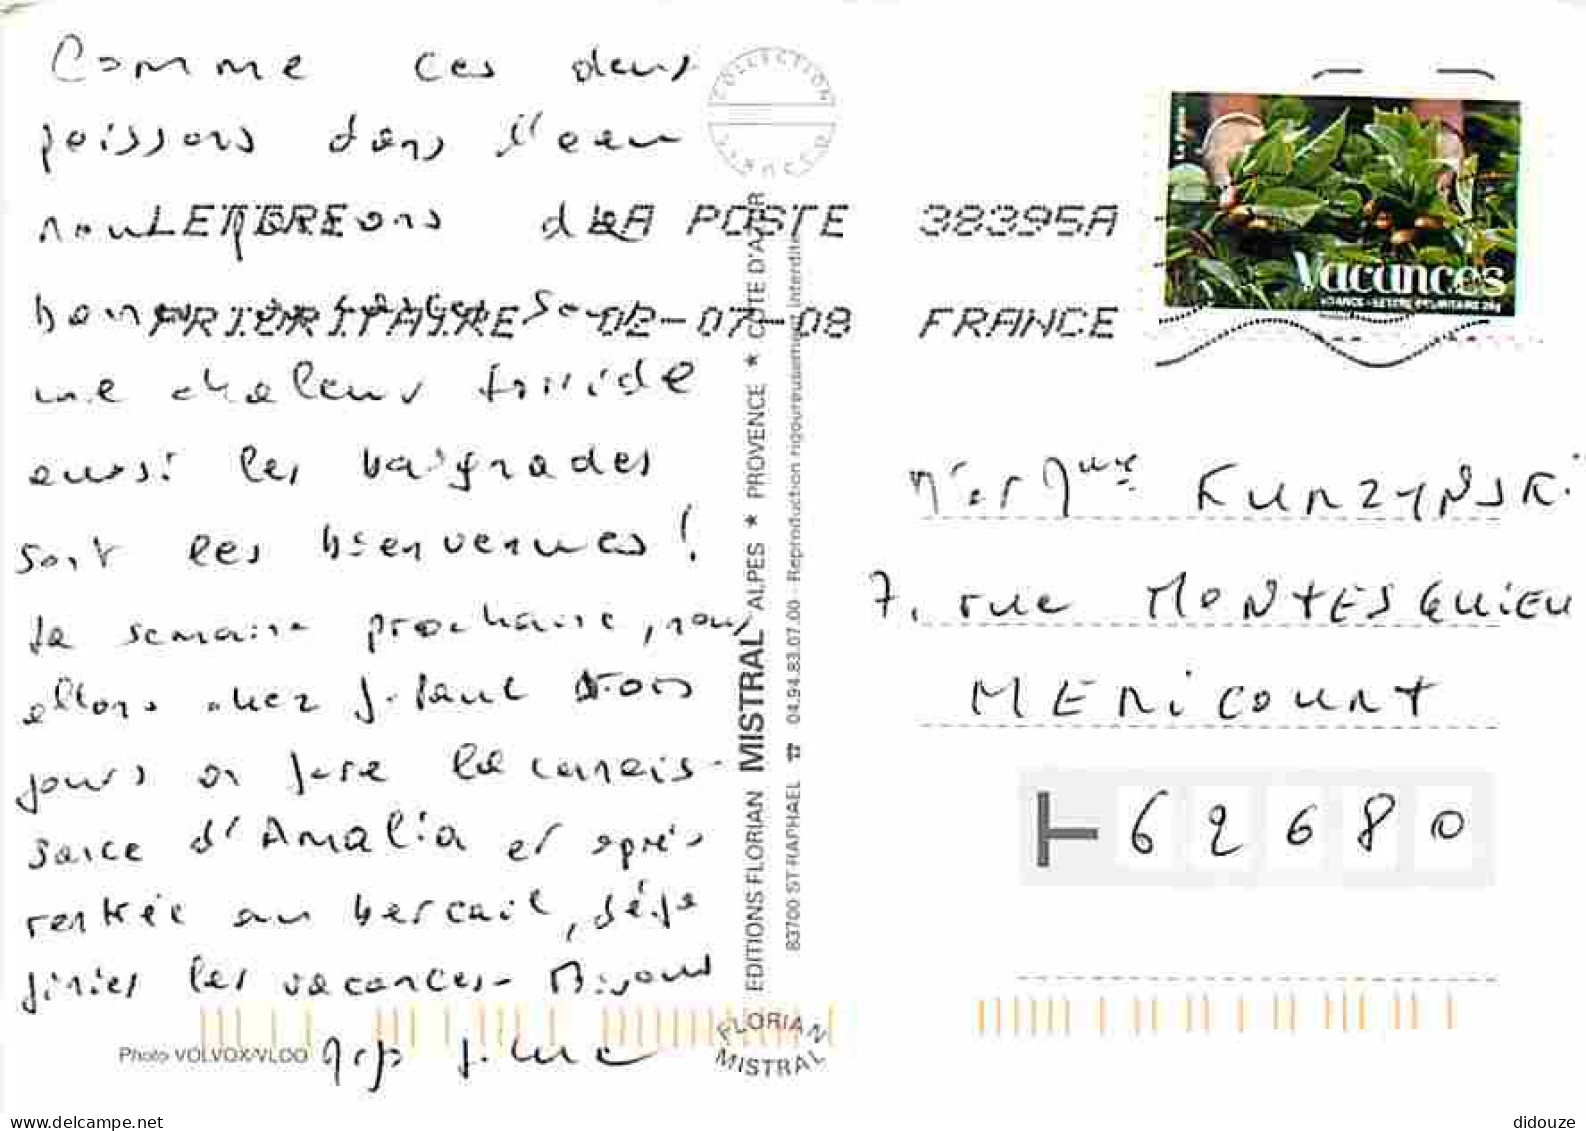 Comme ces deux
poissons dans l'eau
nous profitons de
bonnes
une chaleur torride
aussi les baignades
sont les bienvenues !
La semaine prochaine, nous
allons chez J. Paul trois
jours on fera la connais-
sance d'Amalia et après
rentrée au bercail, déjà
finies les vacances. Bisous
COLLECTION
LETTRE
PRIORITAIRE
LA POSTE
02-07-08
38395A
FRANCE
Vacances
EDITIONS FLORIAN MISTRAL ALPES * PROVENCE * COTE D'AZUR
83700 ST-RAPHAEL ☎ 04.94.83.07.00 - Reproduction rigoureusement interdite
M. et Mme KURZYNSKI
7, rue MONTESQUIEU
MERICOURT
62680
Photo VOLVOX/VLOO
FLORIAN
MISTRAL
didouze
delcampe.net